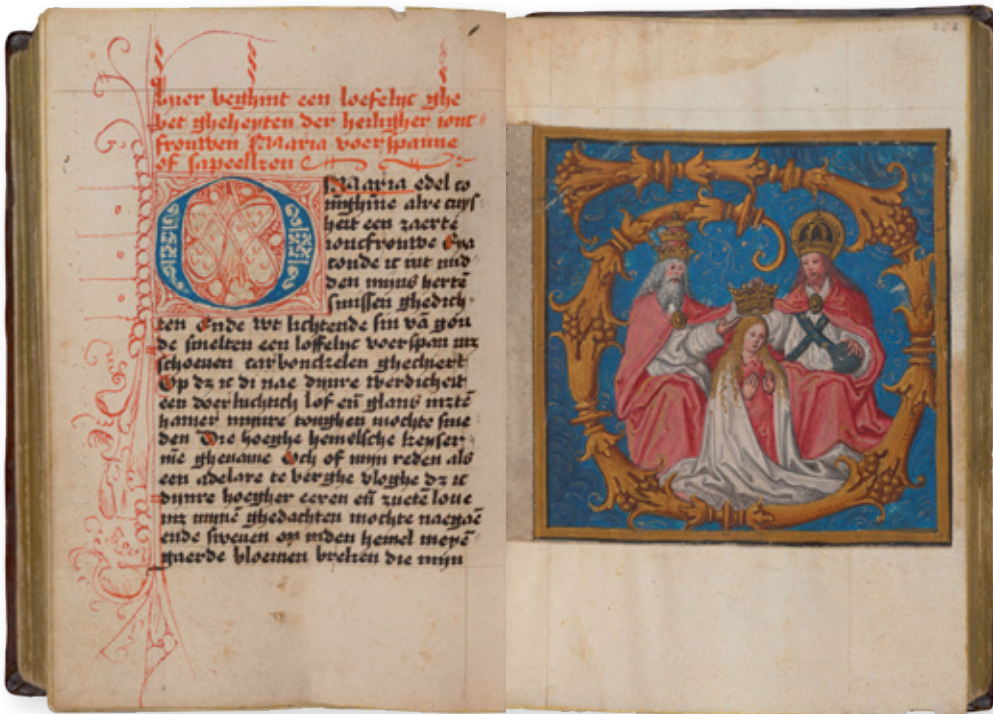 Hier beghint een loefelyc ghe
bet gheheyten der heiligher ionc
frouwen Maria voerspanne
of sapeellken
O Maria edel co
ninghinne alre cuys
heit een zaerte
ioncfrouwe Ena
conde ic uut mid
den mijns herte
sinnissen ghedich
ten Ende wt lichtende sin vā gou
de smelten een loffelyc voerspan mz
schoenen carbonckelen ghechiert
Op dz ic di nae dijnre werdicheit
een doerluchtich lof eñ glans mztē
hamer mijnre tonghen mochte sme
den Die hoeghe hemelsche keyser
ine ghename Och of mijn reden als
een adelare te berghe vloghe dz ic
dijnre hoegher eeren eñ zueten loue
mz mijnē ghedachten mochte naegaē
ende sweuen op inden hemel meyē
gaerde bloemen breken die mijn